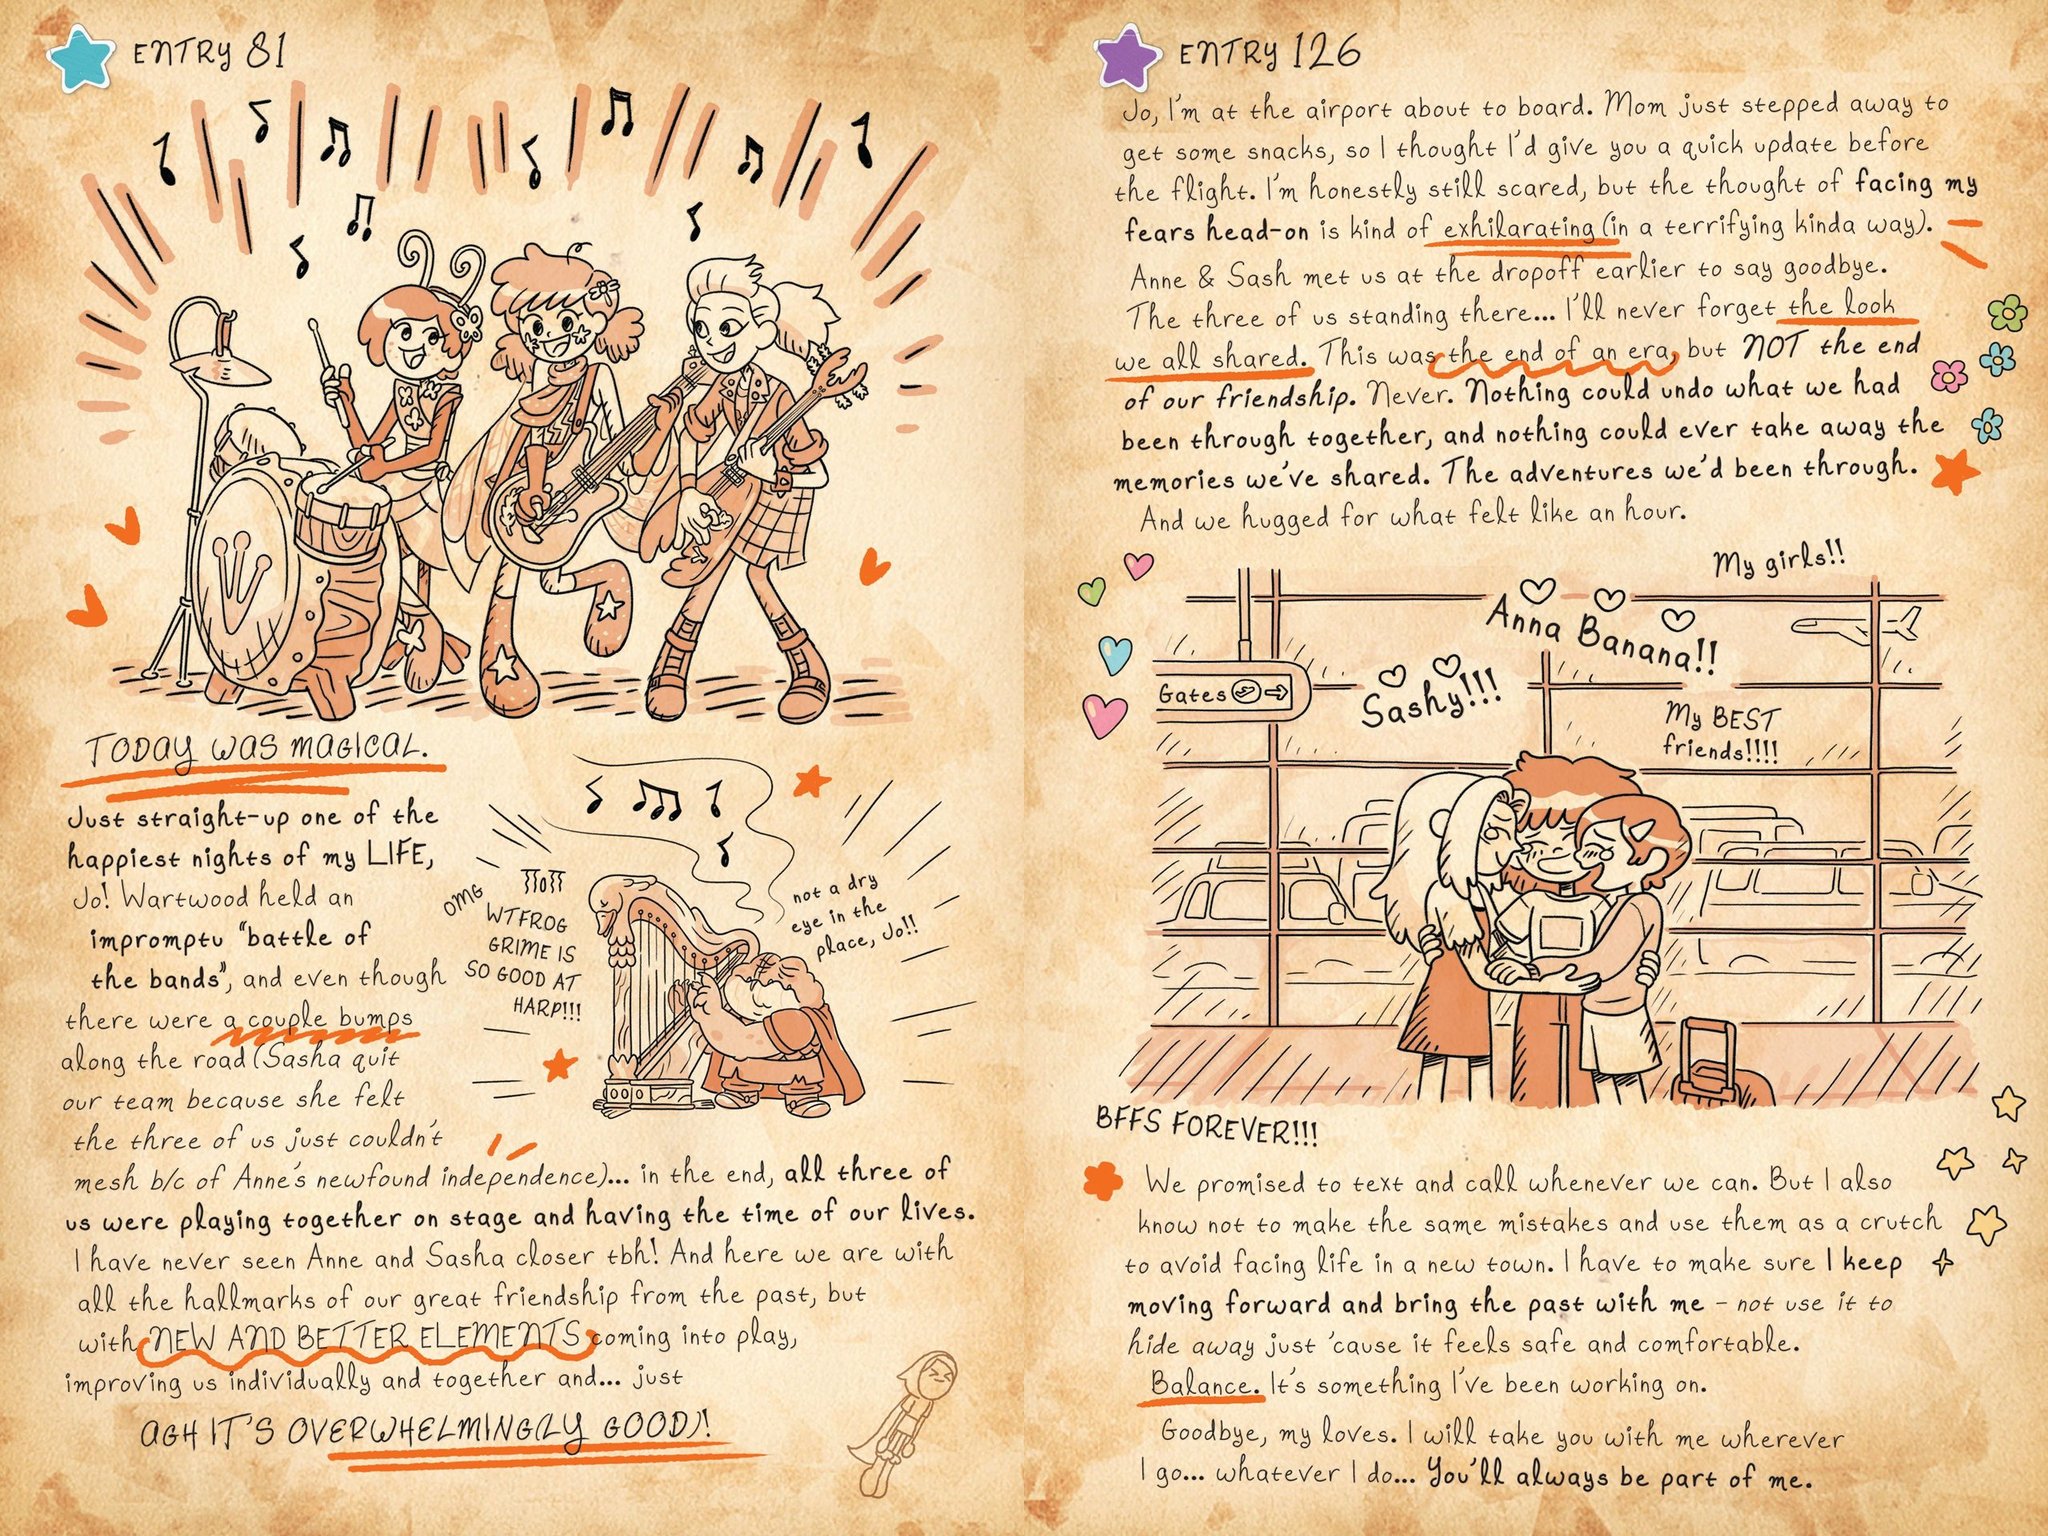 ENTRY 81
TODAY WAS MAGICAL.
Just straight-up one of the
happiest nights of my LIFE,
Jo! Wartwood held an
impromptu "battle of
the bands", and even though
there were a couple bumps
along the road (Sasha quit
our team because she felt
the three of us just couldn't
mesh b/c of Anne's newfound independence)... in the end, all three of
us were playing together on stage and having the time of our lives.
I have never seen Anne and Sasha closer tbh! And here we are with
all the hallmarks of our great friendship from the past, but
with NEW AND BETTER ELEMENTS coming into play,
improving us individually and together and... just
AGH IT'S OVERWHELMINGLY GOOD!
OMG
WTFROG
GRIME IS
SO GOOD AT
HARP!!!
not a dry
eye in the
place, Jo!!
ENTRY 126
Jo, I'm at the airport about to board. Mom just stepped away to
get some snacks, so I thought I'd give you a quick update before
the flight. I'm honestly still scared, but the thought of facing my
fears head-on is kind of exhilarating (in a terrifying kinda way).
Anne & Sash met us at the dropoff earlier to say goodbye.
The three of us standing there... I'll never forget the look
we all shared. This was the end of an era, but NOT the end
of our friendship. Never. Nothing could undo what we had
been through together, and nothing could ever take away the
memories we've shared. The adventures we'd been through.
And we hugged for what felt like an hour.
My girls!!
Anna Banana!!
Sashy!!!
Gates
My BEST
friends!!!!
BFFS FOREVER!!!
We promised to text and call whenever we can. But I also
know not to make the same mistakes and use them as a crutch
to avoid facing life in a new town. I have to make sure I keep
moving forward and bring the past with me – not use it to
hide away just 'cause it feels safe and comfortable.
Balance. It's something I've been working on.
Goodbye, my loves. I will take you with me wherever
I go... whatever I do... You'll always be part of me.